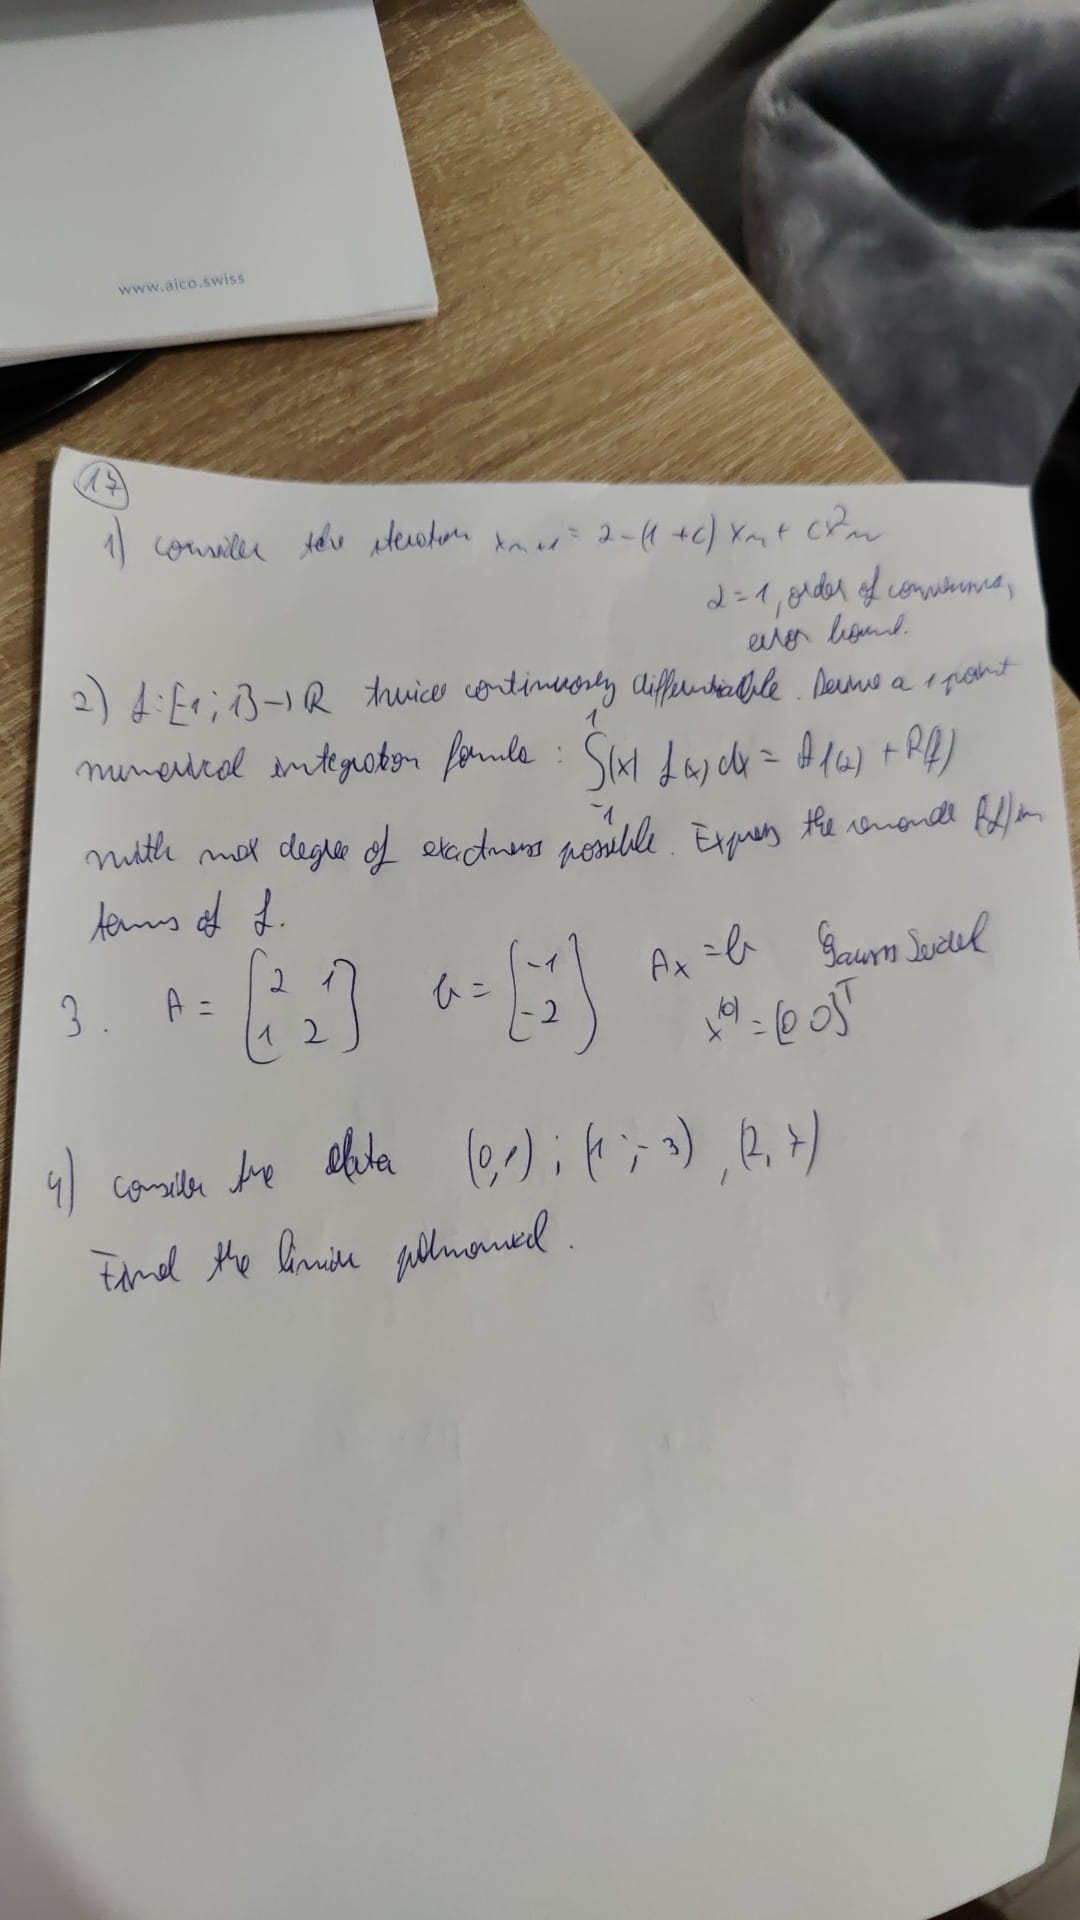 www.aico.swiss
17
1) consider the iteration x_{n+1} = 2-(1+c) x_n + cx²_n
α=1, order of convergence,
error bound.
2) f:[-1;1]→R twice continuously differentiable. Derive a 1 point
numerical integration formula : ∫_{-1}^{1} |x| f(x) dx = A f(a) + R(f)
with max degree of exactness possible. Express the R(f) in
terms of f.
3. A = [2 1; 1 2] b = [-1; -2] Ax = b Gauss Seidel
x^(0) = [0 0]^T
4) consider the data (0,1) ; (1;-3) , (2,7)
Find the polynomial.